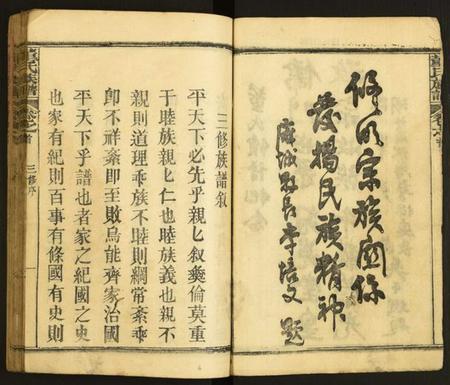 修明宗族關係
發揚民族精神
麻城縣長李培文 題
三修族譜敘
平天下必先乎親匕敘彞倫莫重
于睦族親匕仁也睦族義也親不
親則道理乖族不睦則綱常紊乖
卽不祥紊卽至敗烏能齊家治國
平天下乎譜也者家之紀國之史
也家有紀則百事有條國有史則
氏族譜
卷之首
三修序